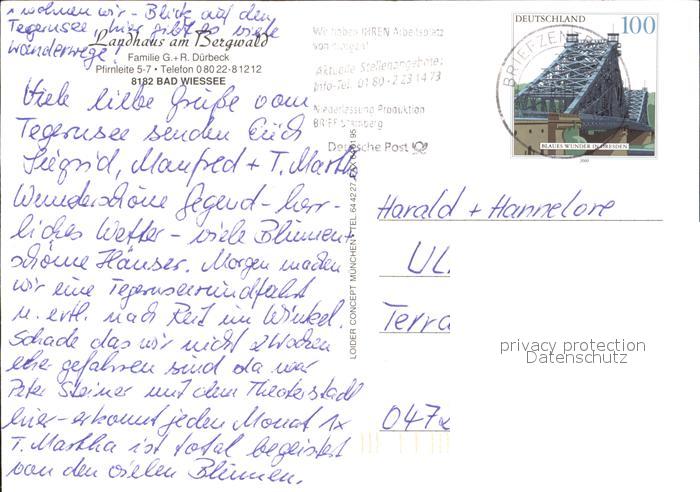 wohnen wir - Blick auf den
Tegernsee, hier gibt es viele
Wanderwege!
Landhaus am Bergwald
Familie G. + R. Dürbeck
Pfirnleite 5-7 • Telefon 08022-81212
8182 BAD WIESSEE
Viele liebe Grüße vom
Tegernsee senden Euch
Siegrid, Manfred + T. Martha
Wunderschöne Gegend - herr-
liches Wetter - viele Blumen +
schöne Häuser. Morgen machen
wir eine Tegernseerundfahrt
u. evtl. nach Reit im Winkel.
Schade das wir nicht 2 Wochen
eher gefahren sind da war
Peter Steiner mit dem Theaterstadl
hier - er kommt jeden Monat 1x
T. Martha ist total begeistert
von den vielen Blumen.
LOIDER CONCEPT MÜNCHEN • TEL.
Wir haben IHREN Arbeitsplatz
von morgen!
Aktuelle Stellenangebote:
Info-Tel. 01 80 - 2 23 14 73
Niederlassung Produktion
BRIEF Starnberg
Deutsche Post
BRIEFZENT
DEUTSCHLAND 100
BLAUES WUNDER IN DRESDEN
2000
Harald + Hannelore
UL
Terra
047
privacy protection
Datenschutz